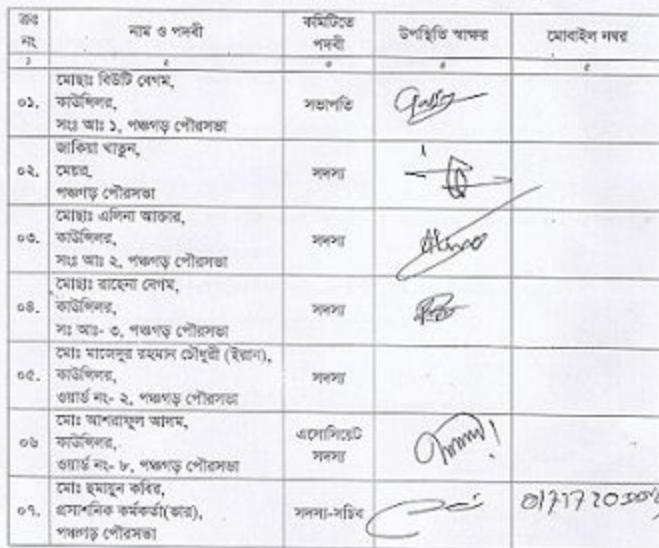 ক্রঃ নং নাম ও পদবী কমিটিতে পদবী উপস্থিতি স্বাক্ষর মোবাইল নম্বর
১ ২ ৩ ৪ ৫
০১. মোছাঃ বিউটি বেগম,
কাউন্সিলর,
সংঃ আঃ ১, পঞ্চগড় পৌরসভা
সভাপতি
০২. জাকিয়া খাতুন,
মেয়র,
পঞ্চগড় পৌরসভা
সদস্য
০৩. মোছাঃ এলিনা আক্তার,
কাউন্সিলর,
সংঃ আঃ ২, পঞ্চগড় পৌরসভা
সদস্য
০৪. মোছাঃ রাহেনা বেগম,
কাউন্সিলর,
সঃ আঃ- ৩, পঞ্চগড় পৌরসভা
সদস্য
০৫. মোঃ মাজেদুর রহমান চৌধুরী (ইরান),
কাউন্সিলর,
ওয়ার্ড নং- ২, পঞ্চগড় পৌরসভা
সদস্য
০৬ মোঃ আশরাফুল আলম,
কাউন্সিলর,
ওয়ার্ড নং- ৮, পঞ্চগড় পৌরসভা
এসোসিয়েট
সদস্য
০৭. মোঃ হুমায়ুন কবির,
প্রসাশনিক কর্মকর্তা(ভার),
পঞ্চগড় পৌরসভা
সদস্য-সচিব